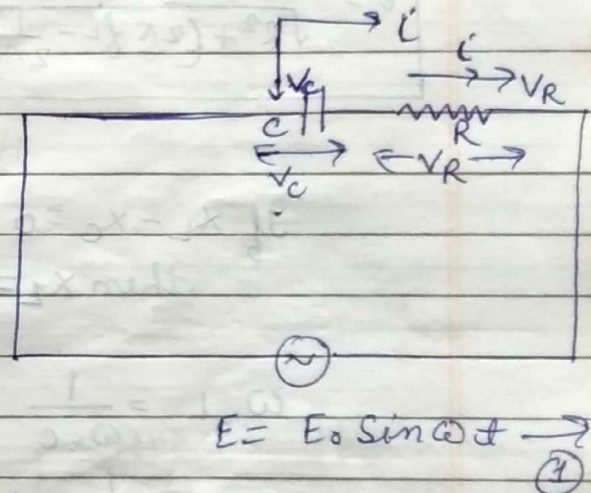 i
i
V_C
V_R
C
R
V_C
V_R
~
E = E₀ Sin ω t →
①